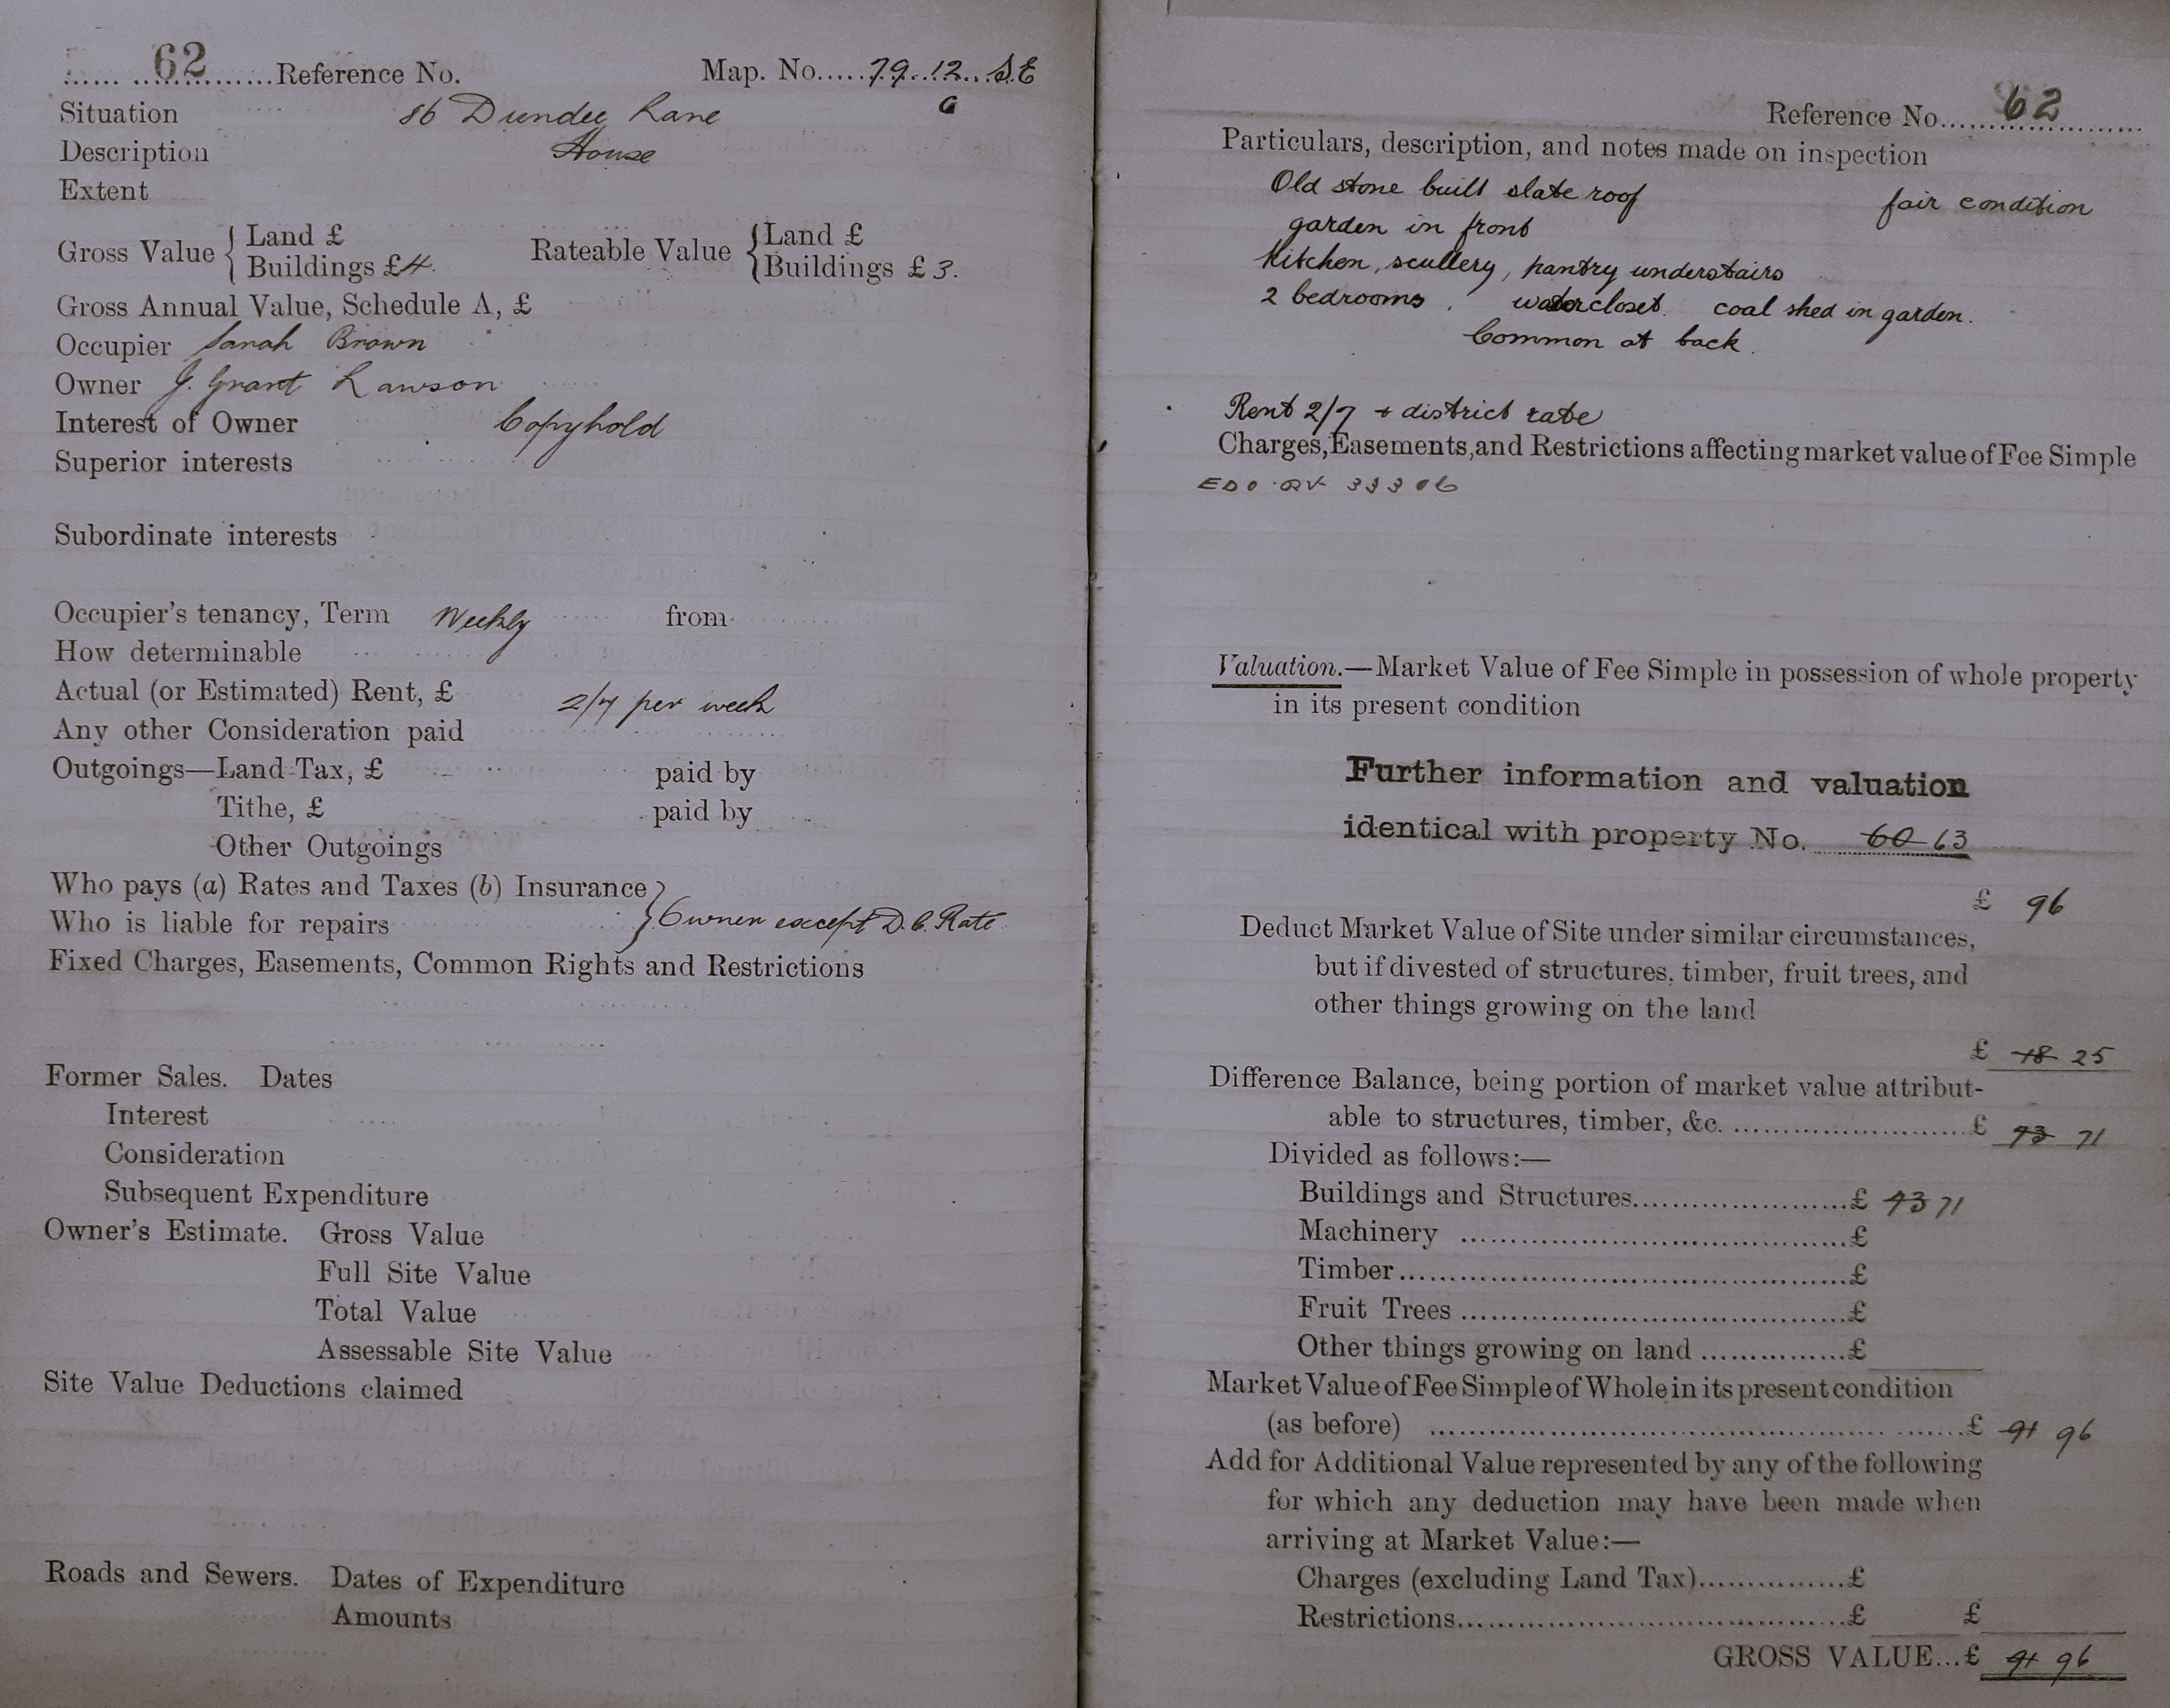 62 Reference No. Map. No. 79. 12. S.E
Situation 86 Dundee Lane a
Description House
Extent
Gross Value { Land £ Rateable Value { Land £
Buildings £4. Buildings £ 3.
Gross Annual Value, Schedule A, £
Occupier Sarah Brown
Owner J. Grant Lawson
Interest of Owner Copyhold
Superior interests
Subordinate interests
Occupier's tenancy, Term Weekly from
How determinable
Actual (or Estimated) Rent, £ 2/7 per week
Any other Consideration paid
Outgoings—Land Tax, £ paid by
Tithe, £ paid by
Other Outgoings
Who pays (a) Rates and Taxes (b) Insurance }
Who is liable for repairs } Owner except D.C. Rate.
Fixed Charges, Easements, Common Rights and Restrictions
Former Sales. Dates
Interest
Consideration
Subsequent Expenditure
Owner's Estimate. Gross Value
Full Site Value
Total Value
Assessable Site Value
Site Value Deductions claimed
Roads and Sewers. Dates of Expenditure
Amounts
Reference No. 62
Particulars, description, and notes made on inspection
Old stone built slate roof fair condition
garden in front
Kitchen, scullery, pantry understairs
2 bedrooms. watercloset. coal shed in garden.
Common at back.
Rent 2/7 + district rate
Charges, Easements, and Restrictions affecting market value of Fee Simple
33306
Valuation.—Market Value of Fee Simple in possession of whole property
in its present condition
Further information and valuation
identical with property No. 60 63
£ 96
Deduct Market Value of Site under similar circumstances,
but if divested of structures, timber, fruit trees, and
other things growing on the land
£ 18 25
Difference Balance, being portion of market value attribut-
able to structures, timber, &c. £ 73 71
Divided as follows:—
Buildings and Structures £ 73 71
Machinery £
Timber £
Fruit Trees £
Other things growing on land £
Market Value of Fee Simple of Whole in its present condition
(as before) £ 91 96
Add for Additional Value represented by any of the following
for which any deduction may have been made when
arriving at Market Value:—
Charges (excluding Land Tax) £
Restrictions £ £
GROSS VALUE...£ 91 96